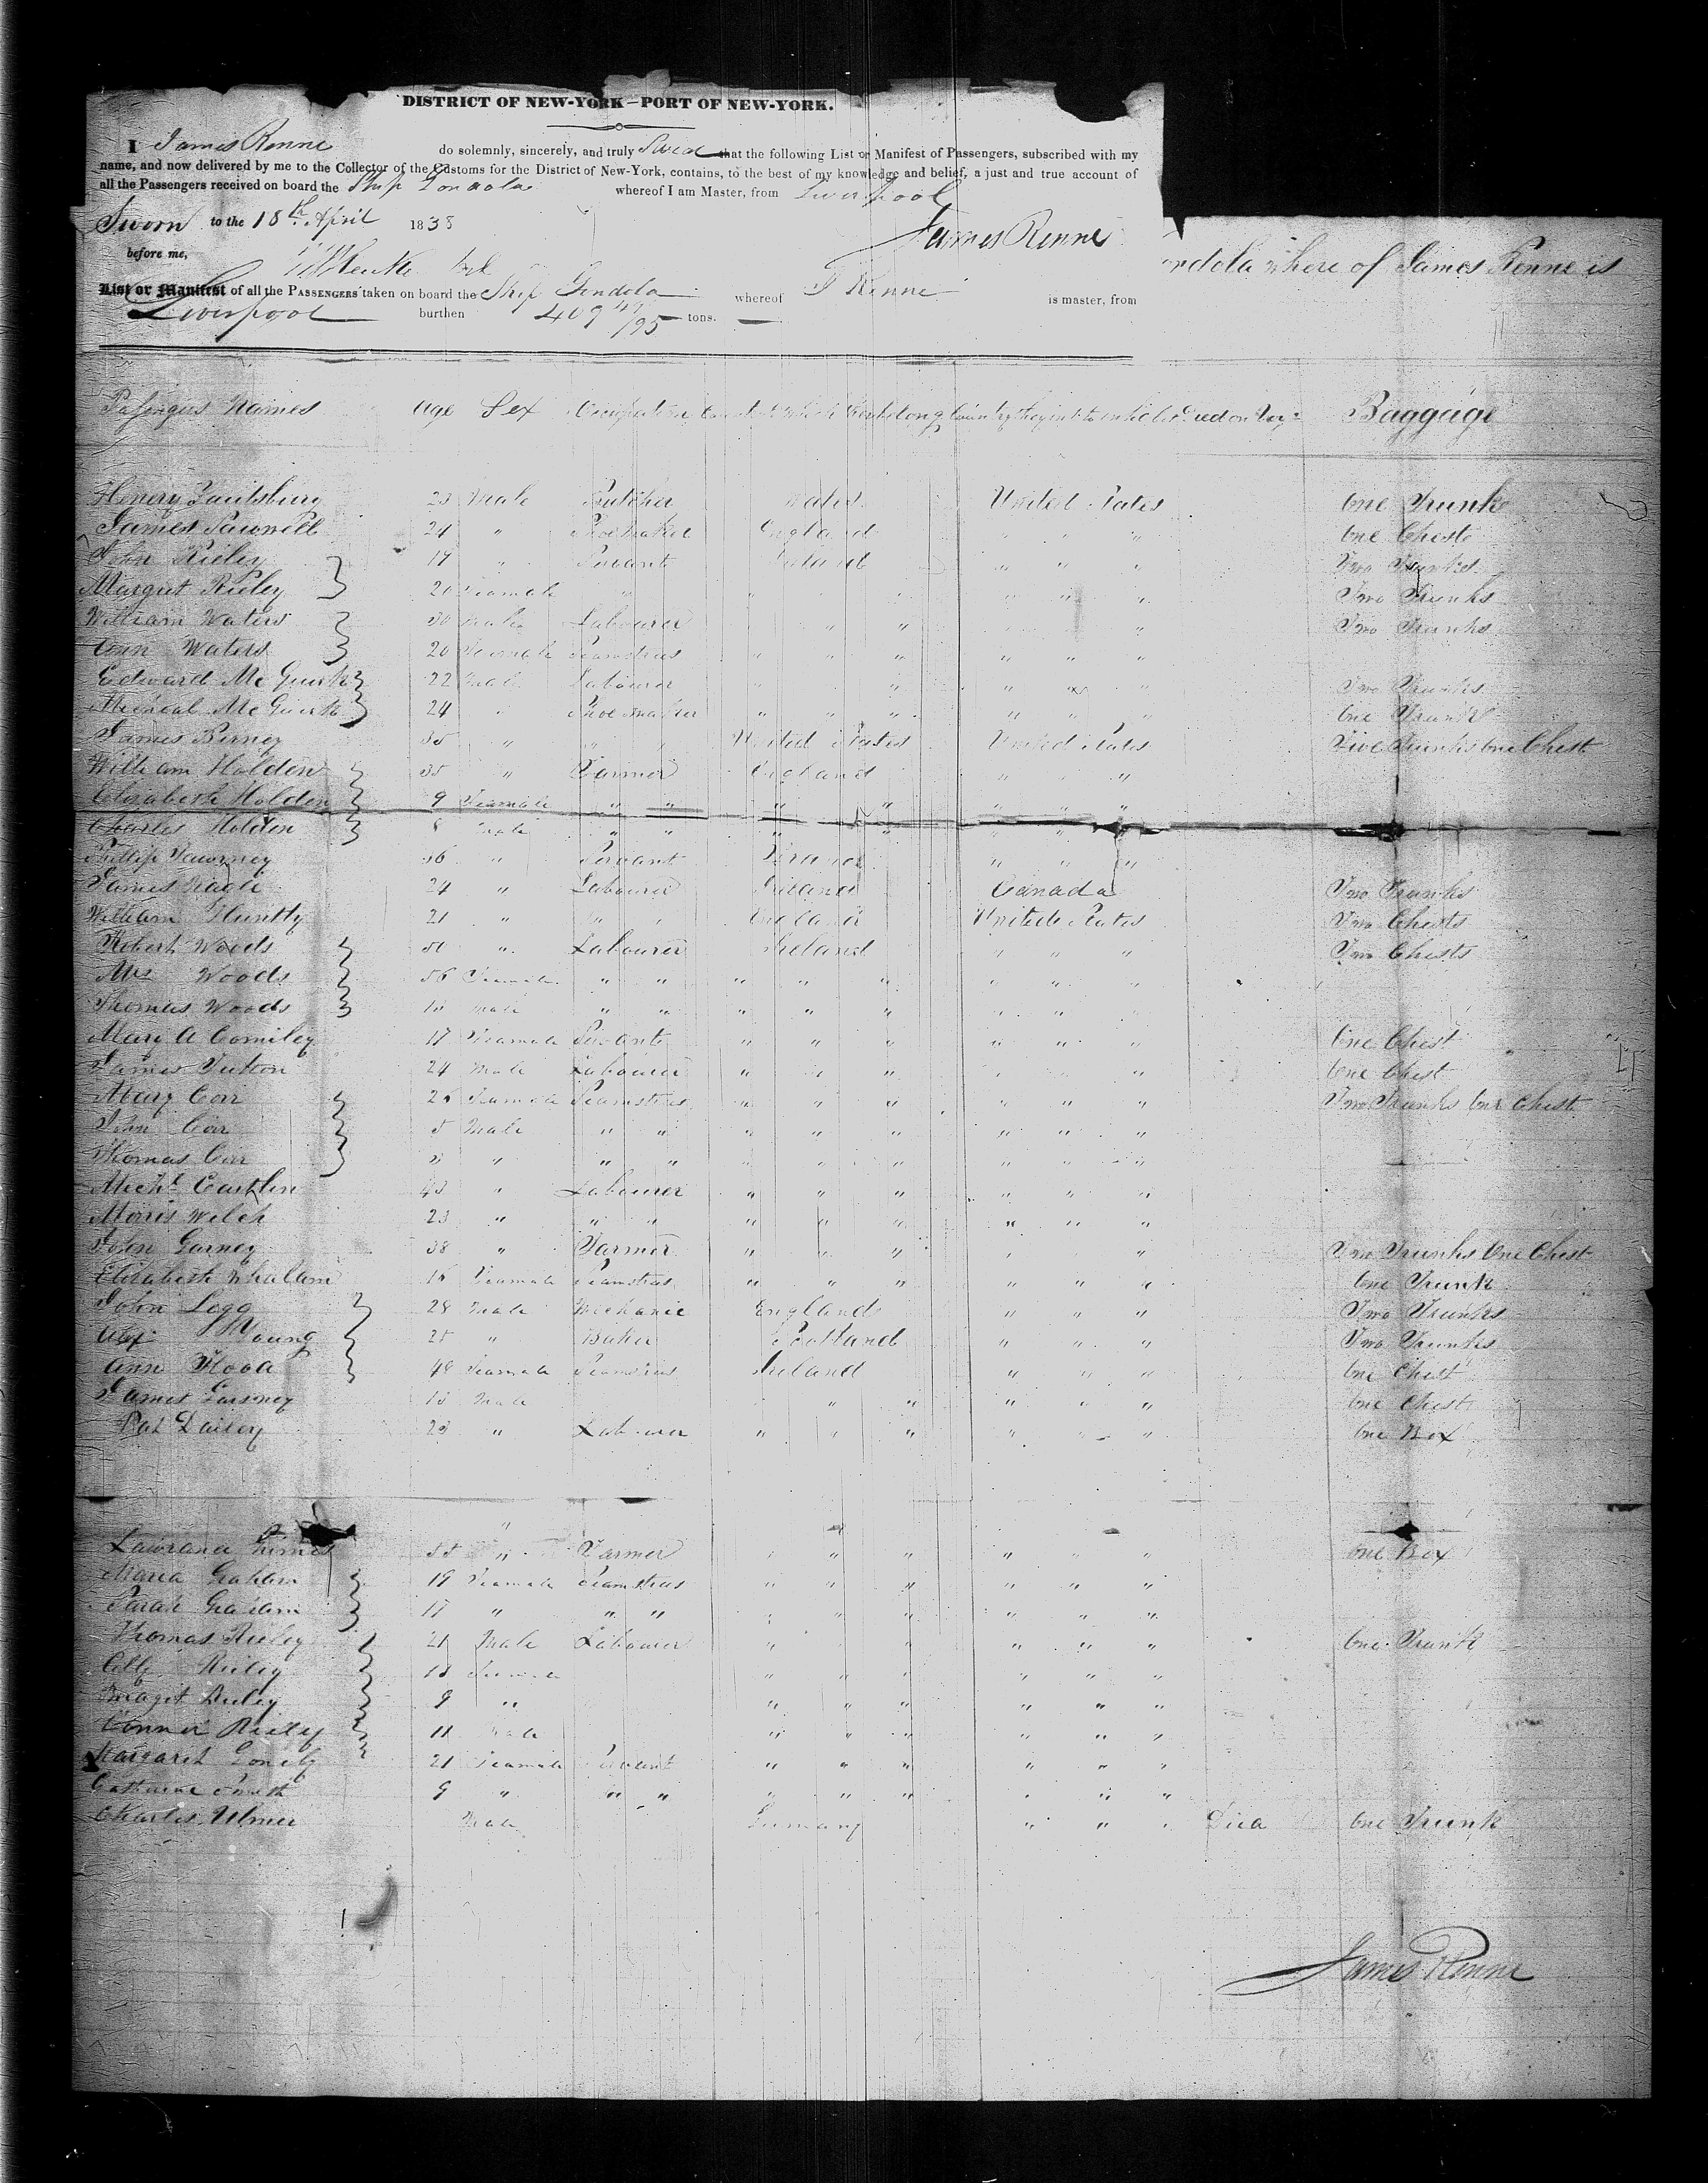 DISTRICT OF NEW-YORK—PORT OF NEW-YORK.
I James Renne do solemnly, sincerely, and truly Swear that the following List or Manifest of Passengers, subscribed with my
name, and now delivered by me to the Collector of the Customs for the District of New-York, contains, to the best of my knowledge and belief, a just and true account of
all the Passengers received on board the Ship Gondola whereof I am Master, from Liverpool
Sworn to the 18th April 1838
James Renne
before me,
ondola where of James Renne is
List or Manifest of all the PASSENGERS taken on board the Ship Gondola whereof J Renne is master, from
Liverpool burthen 409 49/95 tons.
Pasengers Names Age Sex Occupation Baggage
Henery 23 Male Butcher Wales United States One Trunk
James 24 " Shoe maker England " " " One Chest
John Rieley 19 " Servant Ireland " " " Two Trunks
Margret Rieley 20 Feamale " " " " Two Trunks
William Waters 30 Male Labourer " " " " " Two Trunks
Ann Waters 20 Feamale Seamstras " " " " "
Edward Mc Guirk 22 Male Labourer " " " " " Two Trunks
Micheal Mc Guirk 24 " Shoe maker " " " " " " One Trunk
James Birney 35 " " " United States United States Five Trunks One Chest
William Holden 35 " Farmer England " " "
Elizabeth Holden 9 Feamale " " " " " " "
Charles Holden 8 Male " " " " " " "
Phillip 36 " Servant France " " "
James Nagle 24 " Labourer Ireland Canada Two Trunks
William Huntly 21 " " " England United States Two Chests
Robert Woods 50 " Labourer Ireland " " " Two Chests
Mrs Woods 56 Feamale " " " " " " " "
Thomas Woods 18 Male " " " " " " " "
Mary A Comiley 17 Feamale Servant " " " " " " One Chest
James 24 Male Labourer " " " " " One Chest
Mary Corr 26 Feamale Seamstras " " " " " " Two Trunks One Chest
John Corr 5 Male " " " " " " " "
Thomas Corr 3 " " " " " " " " "
Michl 43 " Labourer " " " " " "
Morris Welch 23 " " " " " " " " "
John Garney 38 " Farmer " " " " " Two Trunks One Chest
Elizabeth Whalam 16 Feamale Seamstras " " " " " " One Trunk
John Legg 28 Male Mechanic England " " " Two Trunks
Alex Young 25 " Baker Scotland " " " Two Trunks
Ann Flood 48 Feamale Seamstras Ireland " " " One Chest
James 18 Male " " " " " One Chest
Pat Dailey 23 " Labourer " " " " " " One Box
Lawrance 55 " Farmer " " " " " One Box
Maria Graham 19 Feamale Seamstras " " " " " "
Sarah Graham 17 " " " " " " " " "
Thomas Rieley 21 Male Labourer " " " " " One Trunk
Rieley 13 Feamale " " " " "
Rieley 9 " " " " " " "
Conner Rieley 11 Male " " " " " "
Margaret 21 Feamale Servant " " " " " "
Catharine Smith 9 " " " " " " " " "
Charles Ulmer Male Germany " " " Died One Trunk
James Renne